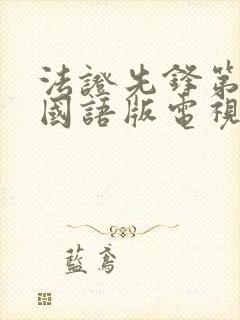 法證先鋒第
國語版電視
藍鳶